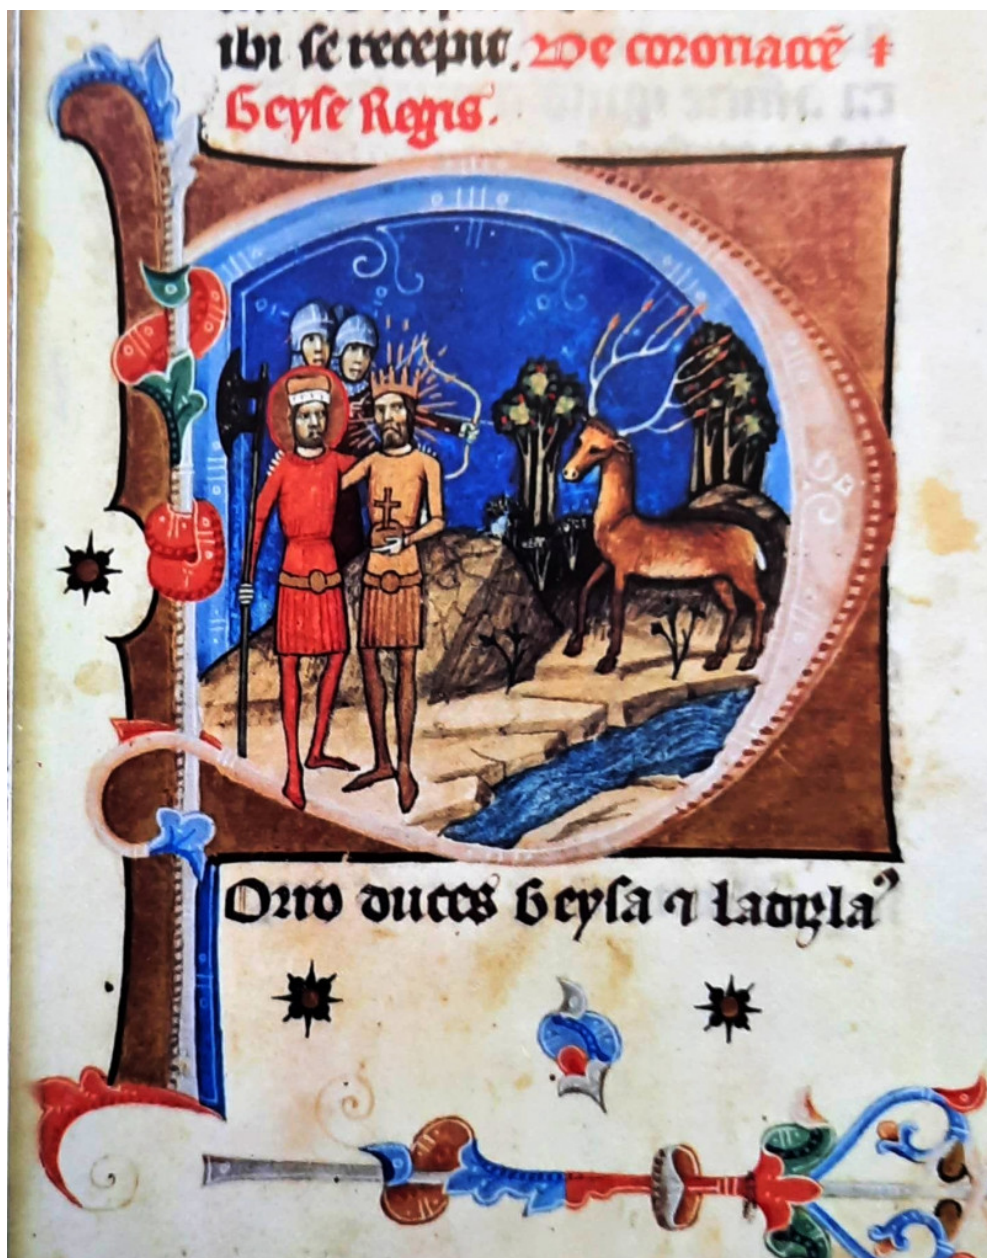 ibi ſe recepit. De coronacōe ⁊
Geyſe Regis.
POrro duces Geyſa ⁊ ladizlaꝰ